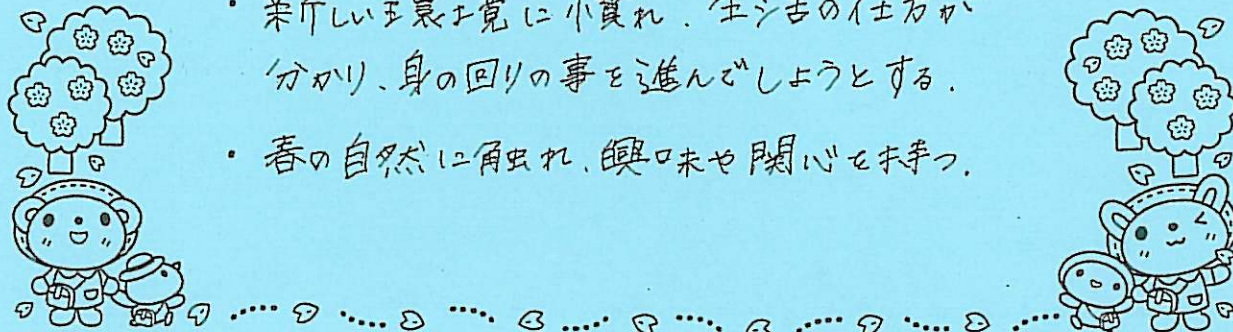 ・新しい環境に慣れ、生活の仕方が
分かり、身の回りの事を進んでしようとする.
・春の自然に触れ、興味や関心を持つ.